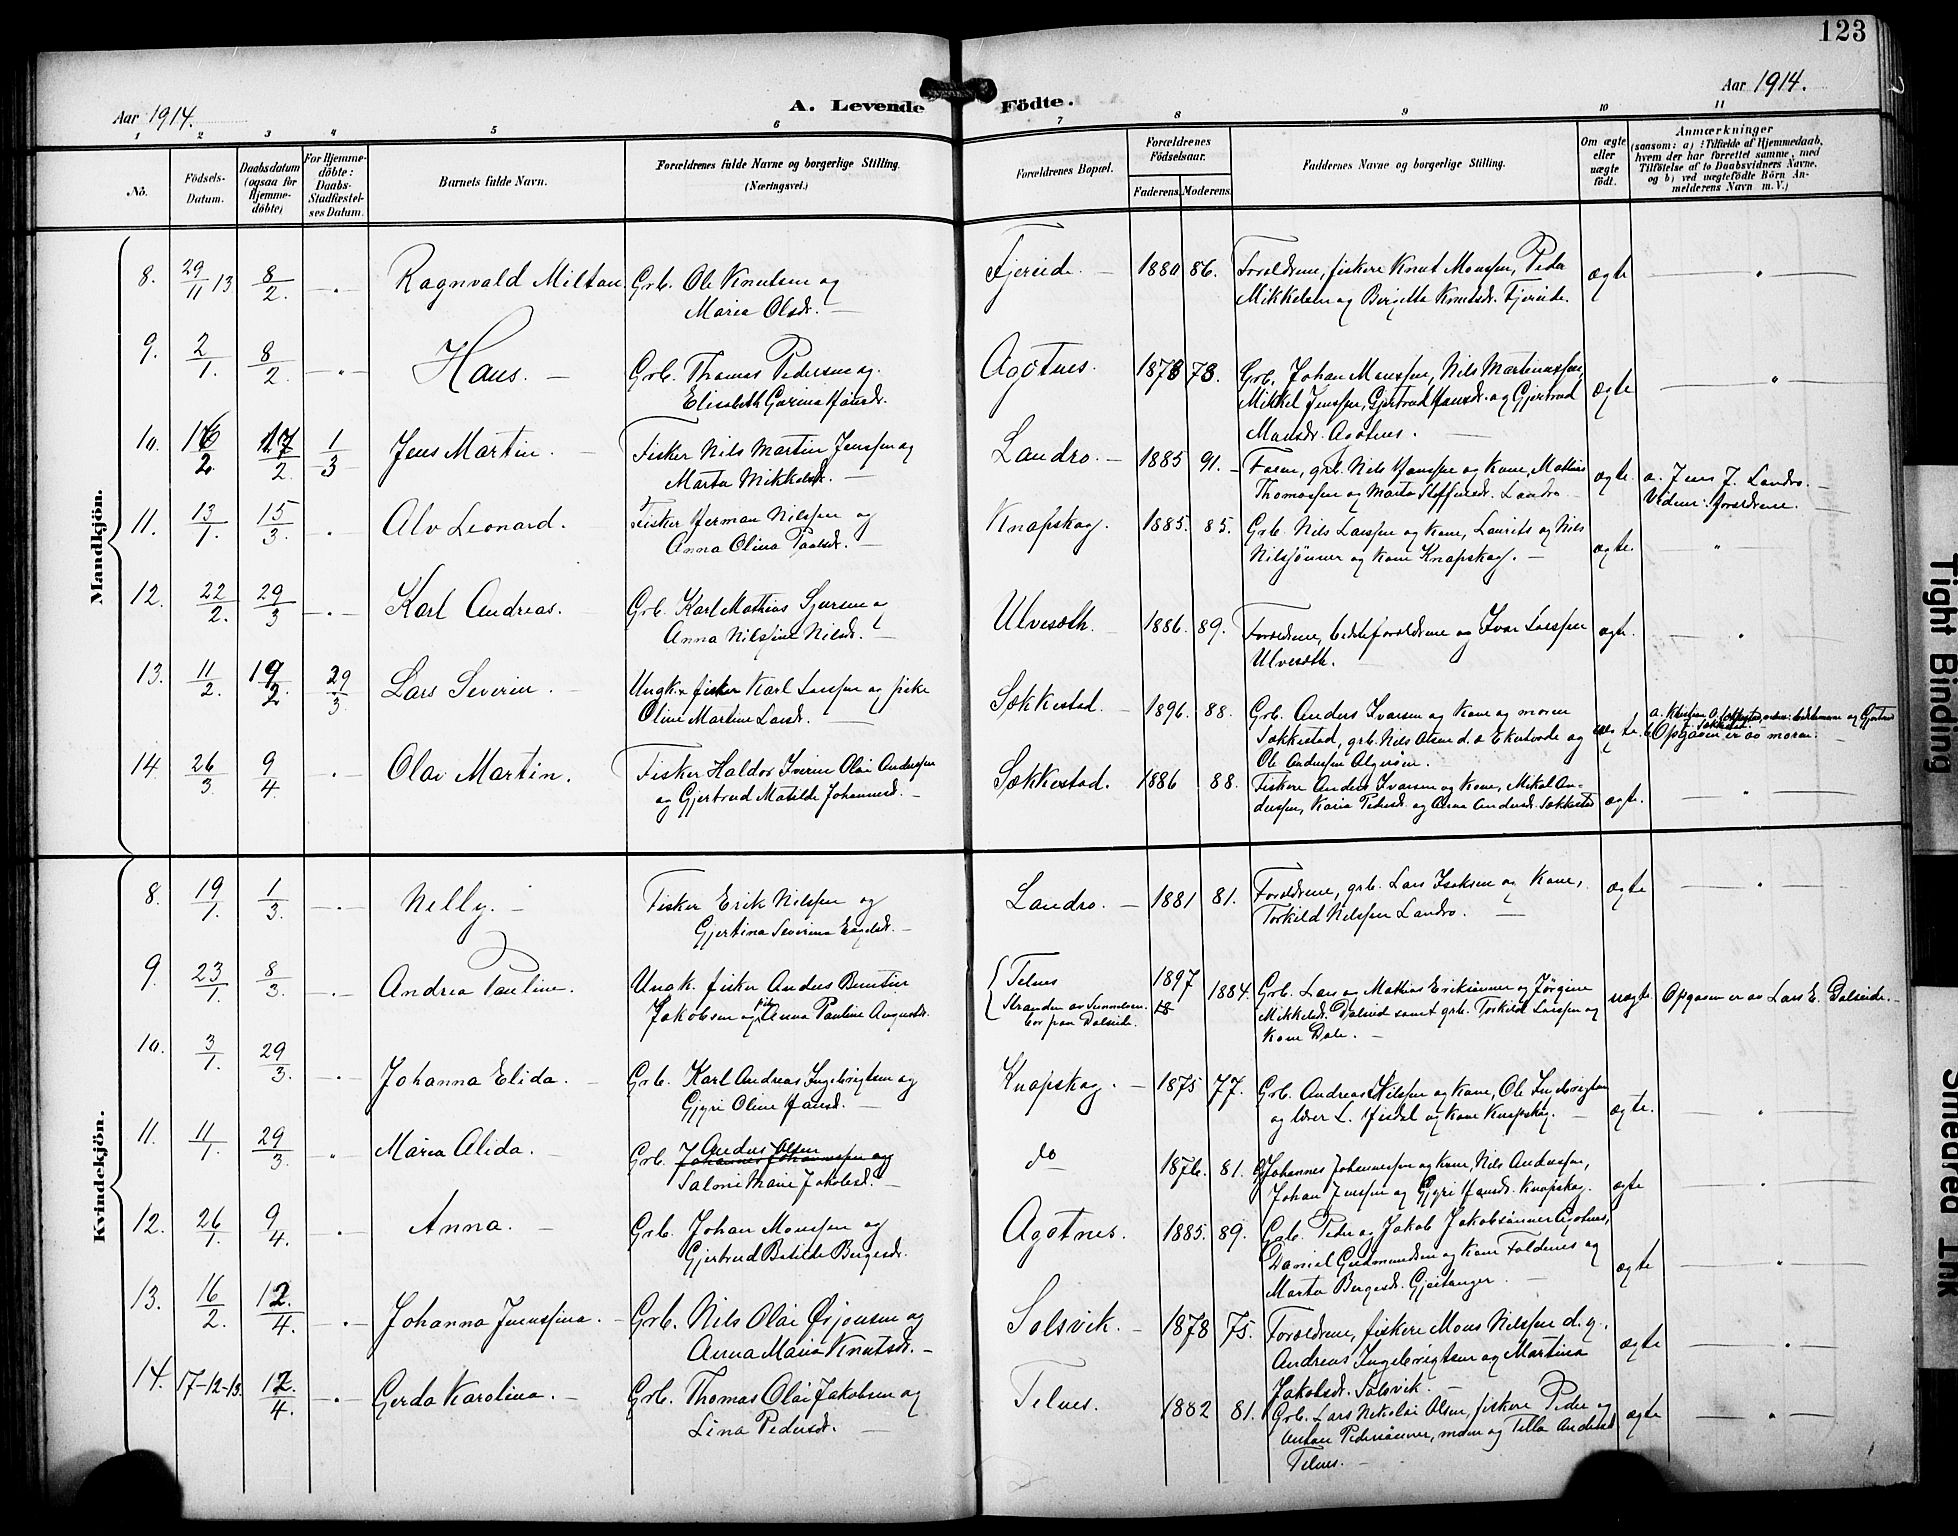 123
Aar 1914.
A. Levende Födte.
Aar 1914.
1 2 3 4 5 6 7 8 9 10 11
No.
Födsels-Datum.
Daabsdatum (ogsaa for Hjemme-döbte)
For Hjemme-döbte: Daabs-Stadfæstel-ses Datum.
Barnets fulde Navn.
Forældrenes fulde Navne og borgerlige Stilling.
(Næringsvei.)
Forældrenes Bopæl.
Forældrenes Födselsaar.
Faderens. Moderens.
Faddernes Navne og borgerlige Stilling.
Om ægte eller uægte födt.
Anmærkninger
(saasom: a) i Tilfælde af Hjemmedaab,
hvem der har forrettet samme, med
Tilföielse af to Daabsvidners Navne,
og b) ved uægtefödte Börn An-
melderens Navn m. V.)
Mandkjön.
8. 29/11 13 8/2. Ragnvald Milton Grb. Ole Knutsen og
Maria Olsdr.
Fjereide. 1880 86. Forældrene, fiskere Knut Monssen, Peder
Mikkelsen og Birgitta Knutsdr. Fjereide. ægte
9. 2/1. 8/2. Hans. Grb. Thomas Pedersen og
Elisabeth Garina Hansdr.
Agotnes. 1878 78. Grb. Johan Monssen, Nils Martinussen,
Mikkel Jenssen, Gjertrud Hansdr. og Gjertrud
Monsdr. Agotnes. ægte
10. 16/2. 17/2. 1/3 Jens Martin. Fisker Nils Martin Jenssen og
Marta Mikkelsdr.
Landro. 1885 91. Faren, grb. Nils Hanssen og Kone, Mathias
Thomassen og Marta Steffensdr. Landro ægte a. Jens J. Landro.
Vidner: forældrene.
11. 13/1. 15/3. Alv Leonard. Fisker Herman Nilssen og
Anna Olina Paalsdr.
Knapskog. 1885. 85. Grb. Nils Larssen og Kone, Laurits og Nils
Nilssönner og Kone Knapskog. ægte.
12. 22/2. 29/3 Karl Andreas. Grb. Karl Mathias Sjursen og
Anna Nilsine Nilsdr.
Ulvesæth. 1886. 89. Forældrene, bedsteforældrene og Ivar Larssen
Ulvesæth. ægte.
13. 11/2. 19/2. 29/3. Lars Severin. Ungk. fisker Karl Larssen og pike
Oline Martine Larsdr.
Sækkestad. 1896. 88. Grb. Anders Ivarsen og Kone og moren
Sækkestad, grb. Nils Olsen d. æ Ekerhovde og
Ole Anderssen Algeröen.
Opgaven er av moren.
14 26/3. 9/4. Olav Martin. Fisker Haldor Iverin Olai Anderssen
og Gjertrud Matilde Johannesdr.
Sækkestad. 1886 88. Fiskere Anders Ivarsen og Kone, Mikal An-
derssen, Karia Pedersdr. og Anna Andersdr. Sækkestad ægte.
Kvindekjön.
8. 19/1. 1/3. Nelly. Fisker Erik Nilssen og
Gjertina Severina Engelsdr.
Landro. 1881 81. Forældrene, grb. Lars Isaksen og Kone,
Torkild Nilssen Landro. ægte
9. 23/1. 8/3. Andrea Pauline. Ungk. fisker Anders Bentin
Jakobsen og pike Anna Pauline Augustsdr.
Telnes
Stranden av Sunnelven.
bor paa Dalseide.
1897 1884. Grb. Lars og Mathias Eriksönner og Jörgine
Mikkelsdr. Dalseid samt grb. Torkild Larssen og
Kone Dale. uægte Opgaven er av Lars E. Dalseide.
10. 3/1. 29/3. Johanna Elida. Grb. Karl Andreas Ingebrigtsen og
Gjyri Oline Hansdr.
Knapskog. 1875 77. Grb. Andreas Nilssen og Kone, Ole Ingebrigtsen
og lærer L. Fjedel og Kone Knapskog. ægte.
11. 11/1. 29/3. Maria Alida. Grb. Johannes Johannessen og Anders Olsen
Salmi Marie Jakobsd.
do 1876. 81. Johannes Johannessen og Kone, Nils Anderssen,
Johan Jenssen og Gjyri Hansdr. Knapskog. ægte
12. 26/1. 9/4. Anna. Grb. Johan Monssen og
Gjertrud Batilde Bergesdr.
Agotnes. 1885. 89. Grb. Peder og Jakob Jakobsönner Agotnes,
Daniel Gudmundsen og Kone Foldenes og
Marta Bergesdr. Gjeitanger. ægte
13. 16/2. 12./4. Johanna Jenssina. Grb. Nils Olai Örjansen og
Anna Maria Knutsdr.
Solsvik. 1878 75. Forældrene, fiskere Mons Nilssen d. y.
Andreas Ingebrigtsen og Martina
Jakobsdr. Solsvik. ægte
14. 17-12-13. 12./4. Gerda Karolina. Grb. Thomas Olai Jakobsen og
Lina Pedersdr.
Telnes. 1882 81. Grb. Lars Nikolai Olsen, fiskere Peder og
Anton Pedersönner, moren og Tilla Andersd.
Telnes. ægte
Tight Binding
Smeared Ink